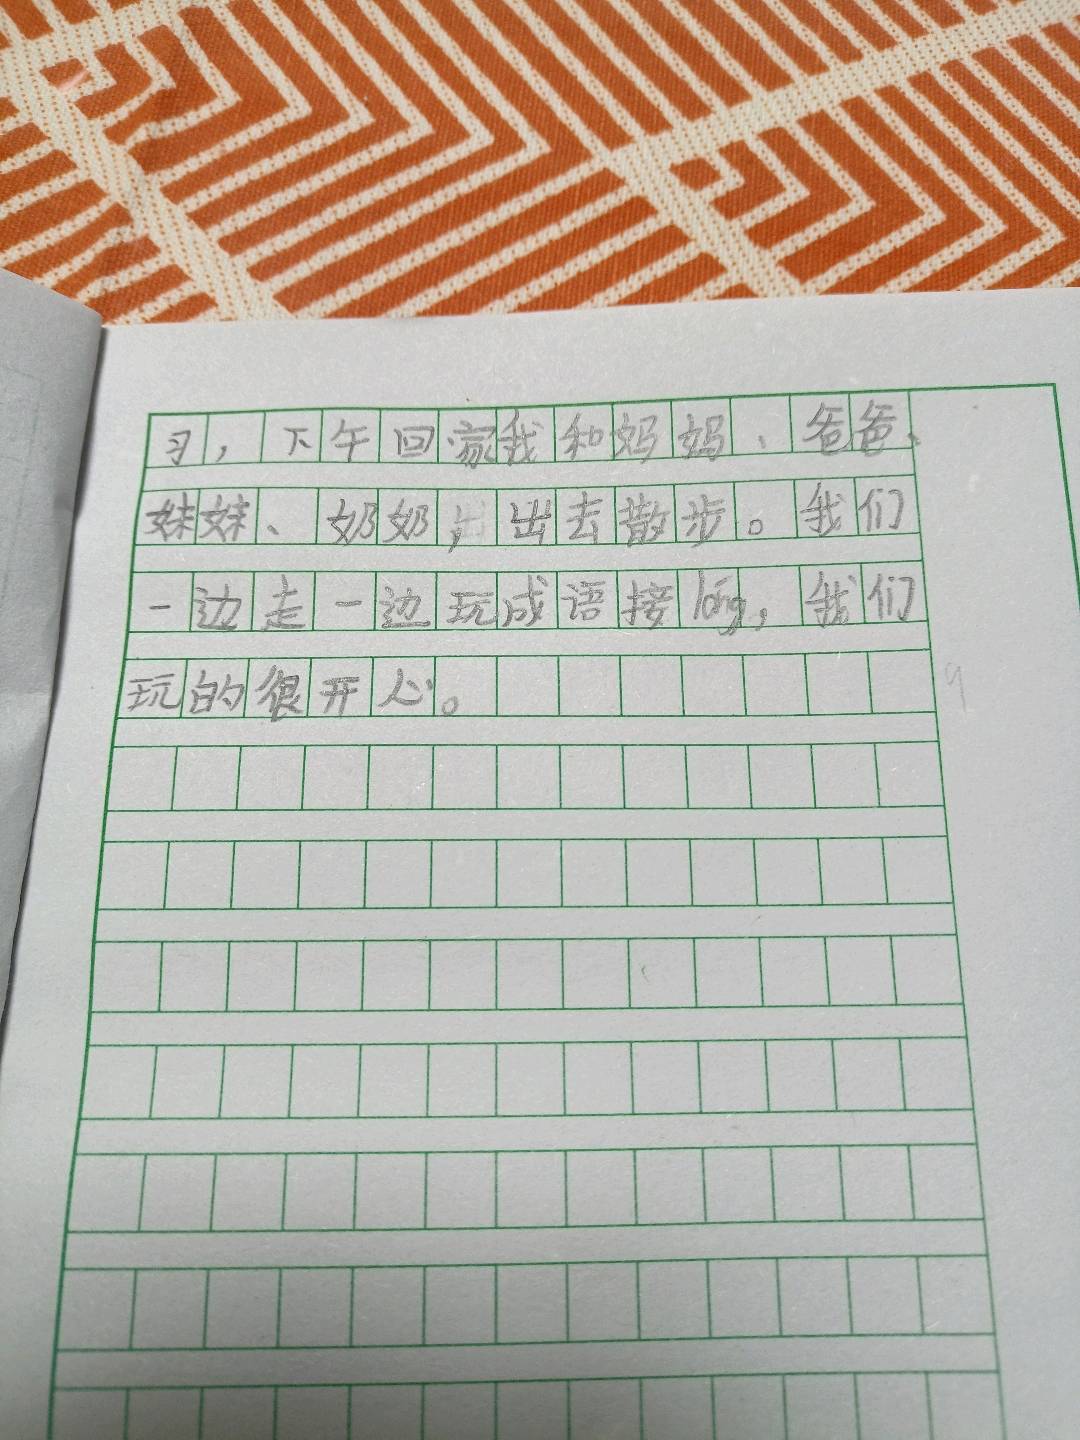 习，下午回家我和妈妈、爸爸、
妹妹、奶奶，出去散步。我们
一边走一边玩成语接lóng，我们
玩的很开心。